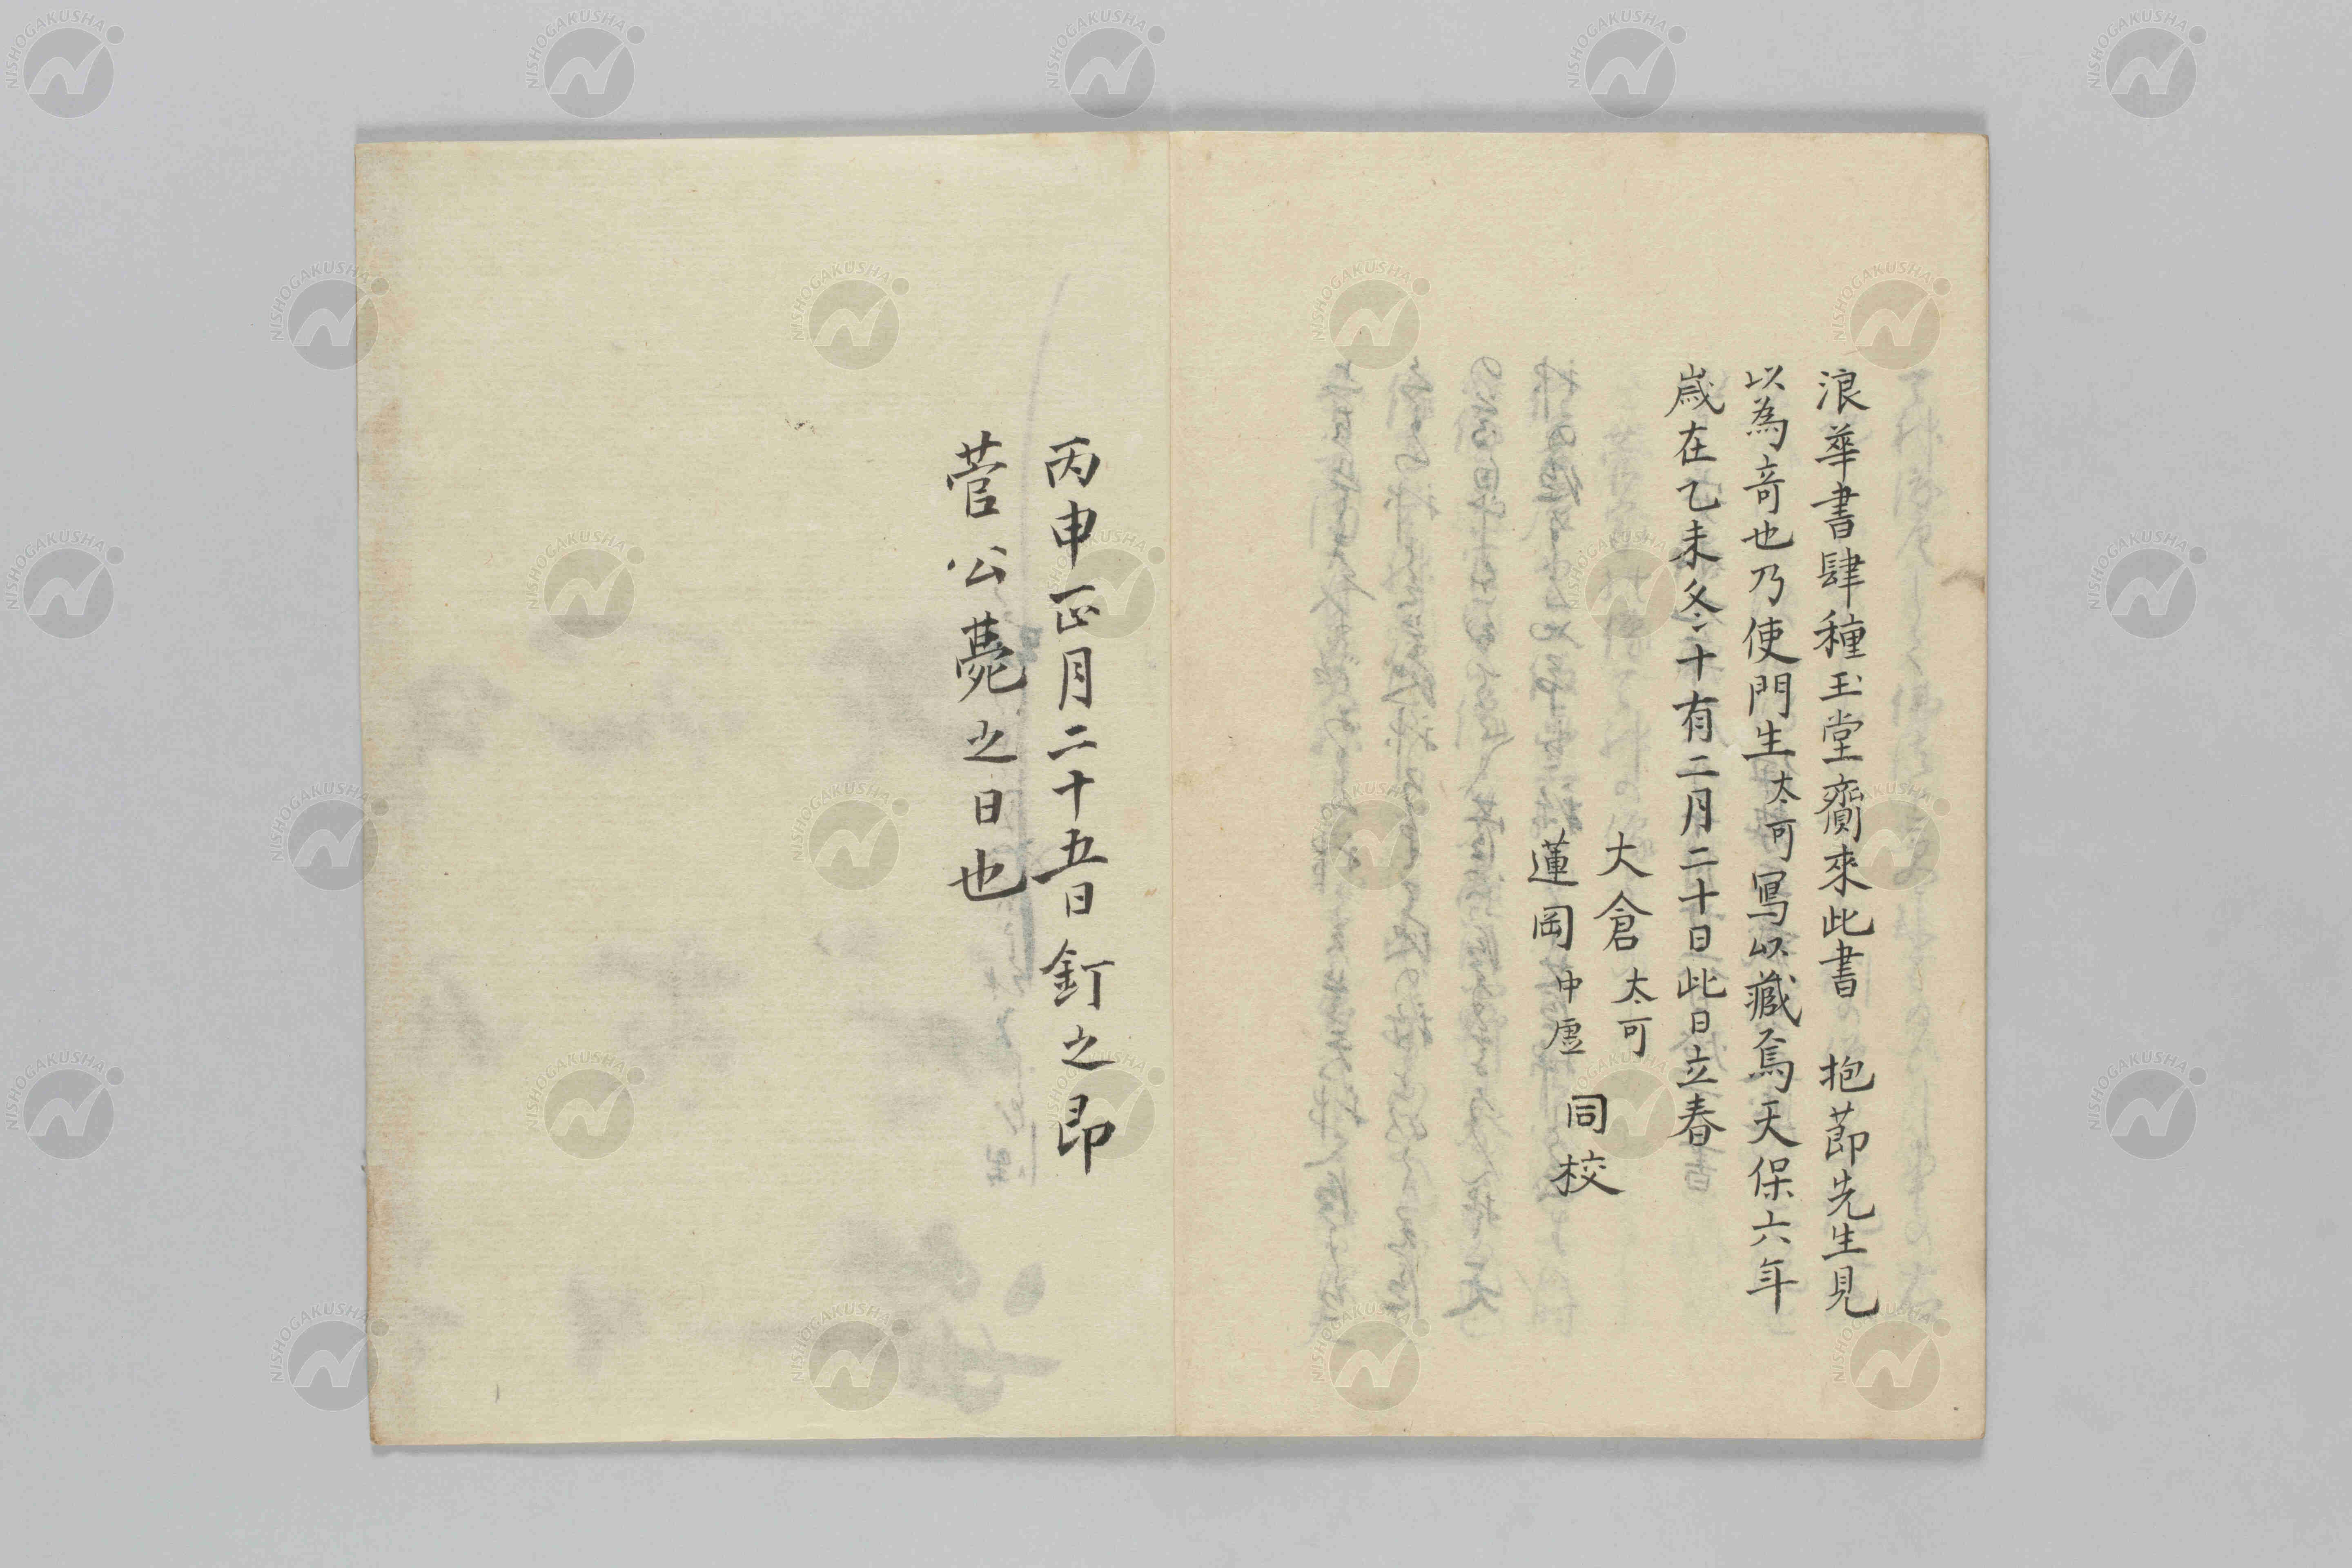 浪華書肆種玉堂齎來此書 抱節先生見
以為竒也乃使門生太可寫以藏焉天保六年
歳在乙未冬十有二月二十日此日立春
大倉太可
蓮岡中虛
同校
丙申正月二十五日釘之即
菅公薨之日也
NISHOGAKUSHA